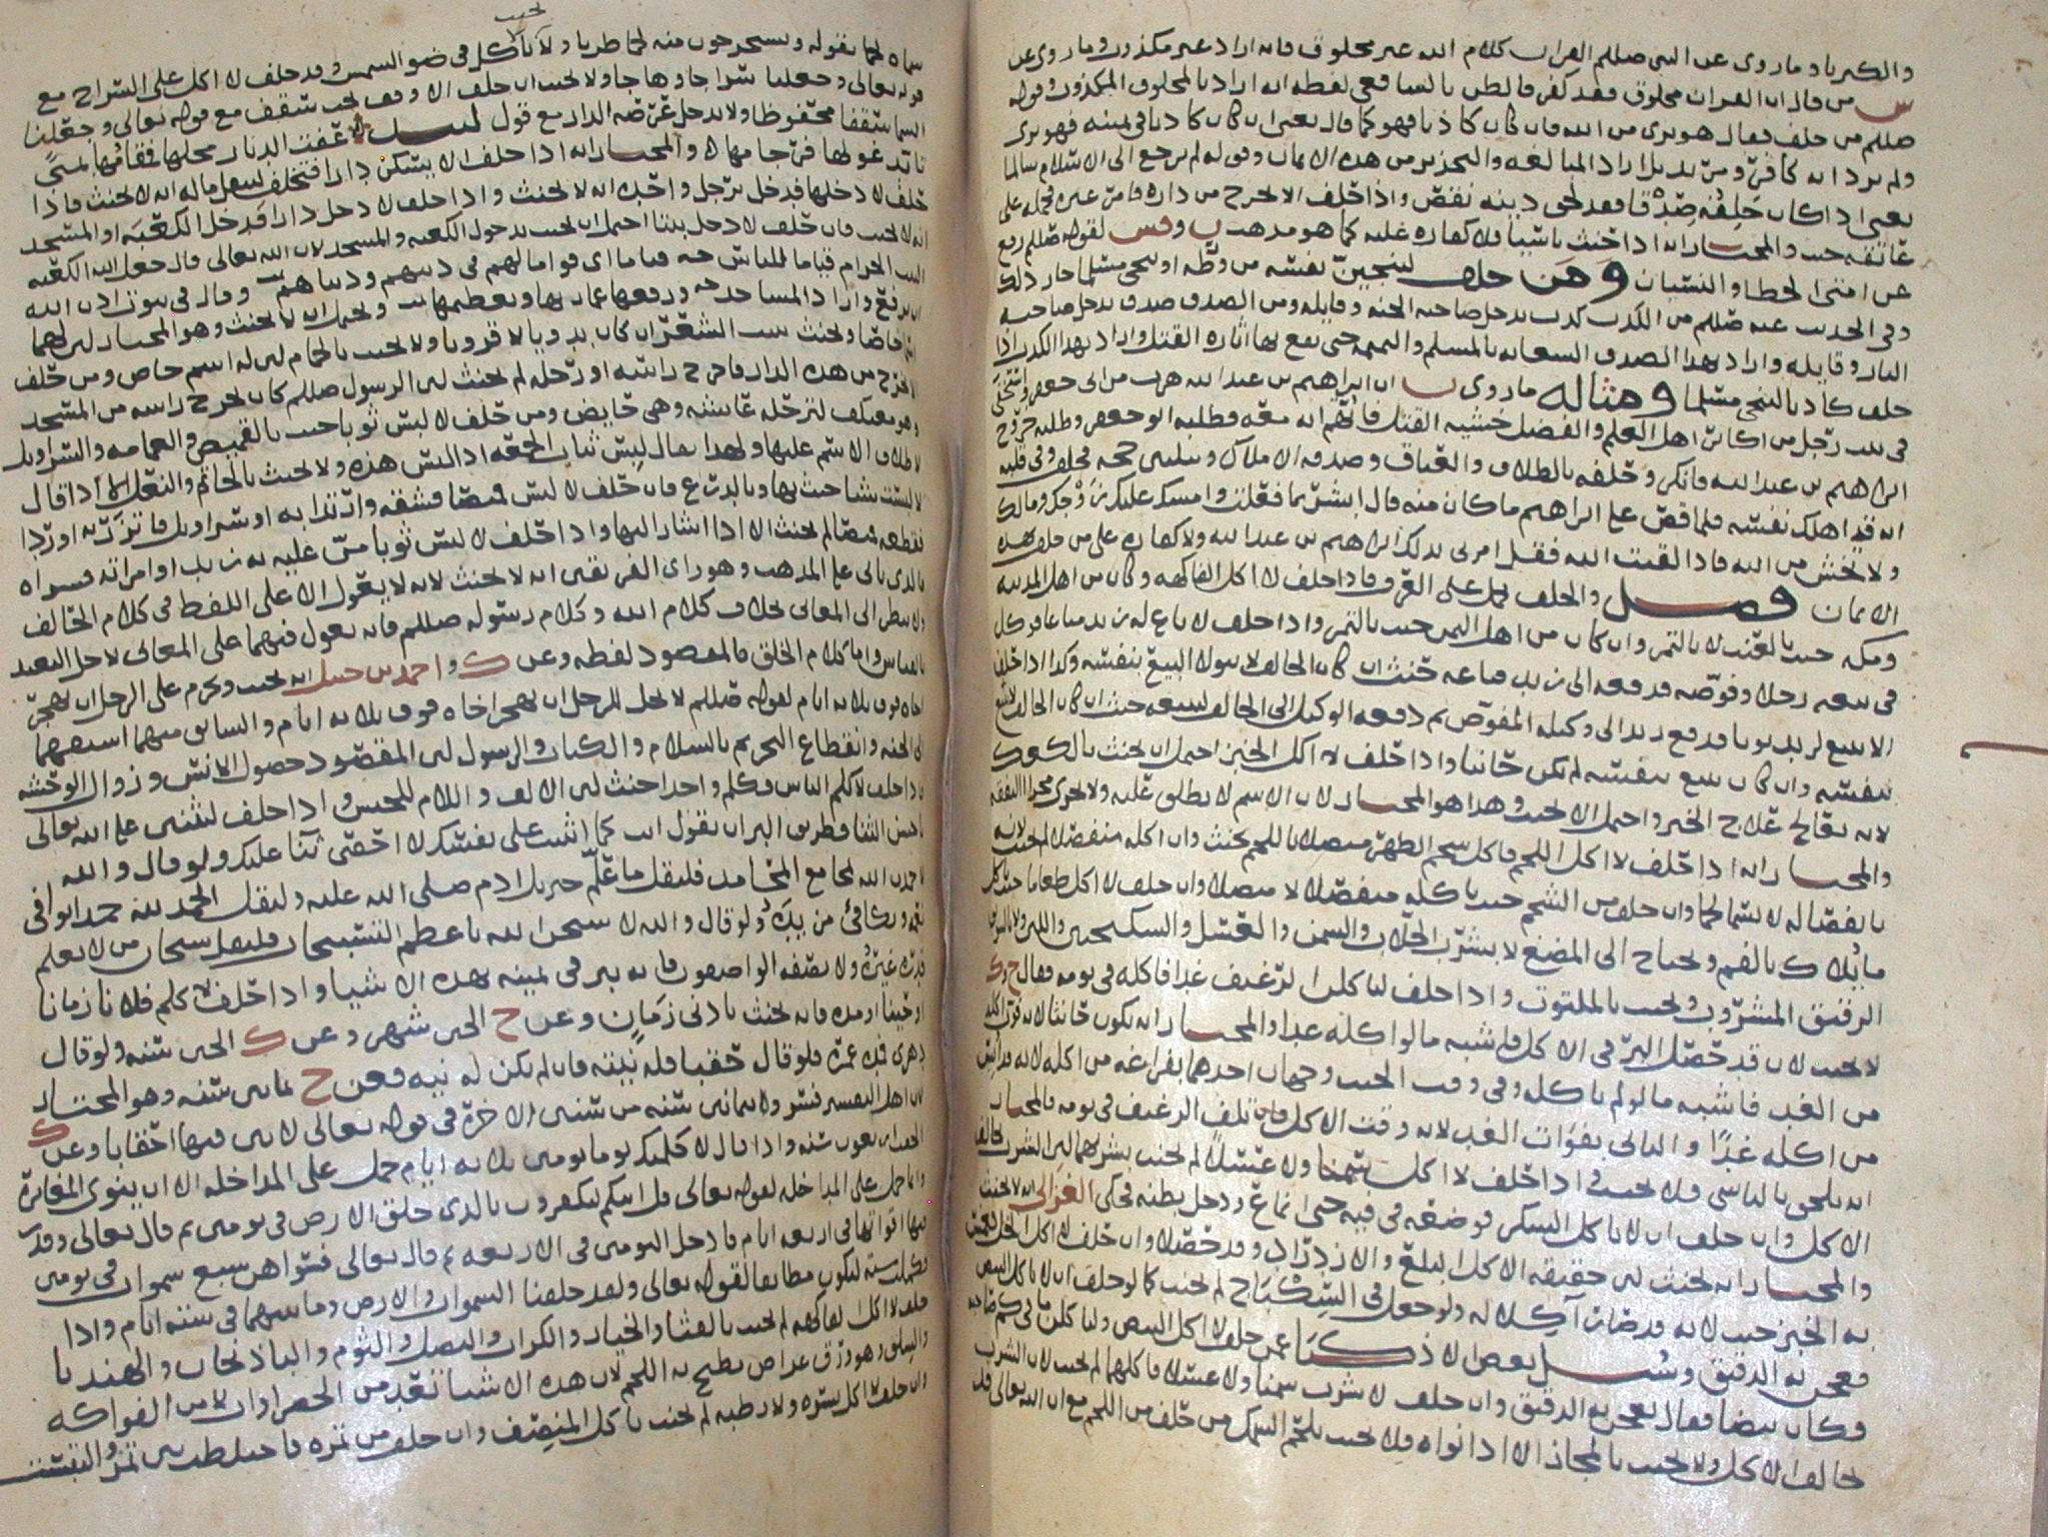 والكبريا وما روي عن النبي صللم القران كلام الله غير مخلوق فانه اراد غير مكذوب وما روي عن
من قال ان القران مخلوق فقد كفر بالمخلوق المكذوب وقوله
صللم من حلف فقال هو بري من الله فان كان كاذبا فهو كما قال يعني ان كان كاذبا في يمينه فهو بري
ولم يرد انه كافر وانما اراد المبالغه والتحذير من هذه الايمان وقوله لم يرجع الى الاسلام سالما
يعني اذا كان حلفه صدقا فقد لحق دينه نقص واذا حلف الا يخرج من داره فامر غيره فحمله على
عاتقه حنث والمختار انه اذا حنث ناسيا فلا كفاره عليه كما هو مذهب لقوله صللم رفع
عن امتي الخطا والنسيان ومن حلف لينجين نفسه من ورطه او ينجي مسلما جاز ذلك
وفي الحديث عنه صللم من الكذب كذب يدخل صاحبه الجنه وقايله ومن الصدق صدق يدخل صاحبه
النار وقايله واراد بهذا الصدق السعايه بالمسلم والنميمه حتى يقع بها اثاره القتل واراد بهذا الكذب اذا
حلف كاذبا لينجي مسلما ومثاله ما روي ان ابراهيم بن عبد الله هرب من ابي جعفر واختفى
في بيت رجل من اهل العلم والفضل خشيه القتل فاتهم انه معه فطلبه ابو جعفر
ابراهيم بن عبد الله فانكر وحلفه بالطلاق والعتاق وصدقه الاملاك وثلاثين حجه فحلف وفي قلبه
انه قد اهلك نفسه فلما قص على ابراهيم ما كان منه قال ابشر بما فعلت وامسك عليك زوجك ومالك
ولا تخش من الله فاذا لقيت الله فقل امرني بذلك ابراهيم بن عبد الله ولا كفاره على من حلف بهذه
الايمان فصل والحلف يحمل على العرف فاذا حلف لا اكل الفاكهه وكان من اهل المدينه
ومكه حنث بالعنب لا بالتمر وان كان من اهل اليمن حنث بالتمر واذا حلف لا باع له زيد متاعا فوكل
في بيعه رجلا وفوضه فدفعه الى زيد فباعه حنث ان كان الحالف لا يتولى البيع بنفسه وكذا اذا حلف
الا يبيع لزيد ثوبا فدفع زيد الى وكيله المفوض ثم دفعه الوكيل الى الحالف ليبيعه حنث ان كان الحالف
بنفسه وان كان يبيع بنفسه لم يكن حانثا واذا حلف لا اكل الخبز احتمل ان يحنث بالكعك
لانه يعالج علاج الخبز واحتمل الا يحنث وهذا هو المختار لان الاسم لا يطلق عليه ولا يجري مجراه
والمختار انه اذا حلف لا اكل اللحم فاكل شحم الظهر متصلا باللحم يحنث وان اكله منفصلا لم يحنث لانه
بانفصاله لا يسمى لحما وان حلف من الشحم حنث باكله منفصلا لا متصلا وان حلف لا اكل طعاما
ما يلاك بالفم ويحتاج الى المضغ لا بشرب الجلاب والسمن والعسل والسكنجبين واللبن
الرقيق المشروب ويحنث بالملتوت واذا حلف لياكلن الرغيف غدا فاكله في يومه فقال
لا يحنث لان قد حصل البر في الاكل فاشبه ما لو اكله غدا والمختار انه يكون حانثا
من الغد فاشبه ما لو لم ياكل وفي وقت الحنث وجهان احدهما بفراغه من اكله
من اكله غدا والثاني بفوات الغد لانه وقت الاكل فان تلف الرغيف في يومه فالمختار
انه يلحق بالناسي فلا يحنث واذا حلف لا اكل سمنا ولا عسلا لم يحنث بشربهما
الاكل وان حلف ان لا ياكل السكر فوضعه في فيه حتى انماع ودخل بطنه فحكى الغزالي انه لا يحنث
والمختار انه يحنث لان حقيقه الاكل البلع والازدراد وقد حصلا وان حلف لا اكل الخل
به الخبز حنث لانه قد صار آكلا له ولو جعل في السكباج لم يحنث كما لو حلف ان لا ياكل البيض
فعجن به الدقيق وسئل بعض الاذكيا عمن حلف لا اكل البيض ولياكلن ما في كم صاحبه
وكان بيضا فقال يعجن به الدقيق وان حلف لا شرب سمنا ولا عسلا فاكلهما لم يحنث لان الشرب
يخالف الاكل ولا يحنث بالمجاز الا اذا نواه فلا يحنث بلحم السمك من حلف من اللحم مع ان الله تعالى قد
سماه لحما بقوله ويستخرجون منه لحما طريا ولا يأكل في ضو الشمس وقد حلف لا اكل على السراج مع
قوله تعالى وجعلنا سراجا وهاجا ولا يحنث ان حلف الا وقف تحت سقف مع قوله تعالى وجعلنا
السما سقفا محفوظا ولا يدخل عرصه الدار مع قول
والمختار انه اذا حلف الا يسكن دارا
حلف لا دخلها فدخل برجل واخر انه لا يحنث واذا حلف لا دخل دارا فدخل الكعبه او المسجد
انه لا يحنث فان حلف لا دخل بيتا احتمل ان يحنث بدخول الكعبه والمسجد لان الله تعالى قال جعل الله الكعبه
البيت الحرام قياما للناس اي قواما لهم في دينهم ودنياهم وقال في بيوت اذن الله
ان ترفع واراد المساجد ورفعها عمارتها وتعظيمها ويحتمل ان لا يحنث وهو المختار
ايضا ويحنث ببيت الشعر ان كان بدويا لا قرويا ولا يحنث بالحمام لان له اسم خاص ومن حلف
لا خرج من هذه الدار فاخرج راسه او رجله لم يحنث لان الرسول صللم كان يخرج راسه من المسجد
وهو معتكف لترجله عائشه وهي حايض ومن حلف لا لبس ثوبا حنث بالقميص والعمامه والسراويل
ولا يحنث بالخاتم والنعل الا اذا قال
لا لبست شيا حنث بها وبالدرع فان حلف لا لبس قميصا فشقه واتزر به او سراويل فاتزر به او ردا
فقطعه قميصا لم يحنث الا اذا اشار اليها واذا حلف لا لبس ثوبا من عليه به زيد او امراته فشراه
بالذي ياتي على المذهب وهو راي الفريقين انه لا يحنث لانه لا يعول الا على اللفظ في كلام الحالف
ولا ينظر الى المعاني بخلاف كلام الله وكلام رسوله صللم فانه يعول فيهما على المعاني لاجل التعبد
بالقياس واما كلام الخلق فالمقصود لفظه وعن ك واحمد بن حنبل انه يحنث ويحرم على الرجل ان يهجر
اخاه فوق ثلاثه ايام لقوله صللم لا يحل للرجل ان يهجر اخاه فوق ثلاثه ايام والسابق منهما اسبقهما
الى الجنه وانقطاع التحريم بالسلام والكتاب والرسول لان المقصود حصول الانس وزوال الوحشه
واذا حلف لا كلم الناس فكلم واحدا حنث لان الالف واللام للجنس واذا حلف ليثنين على الله تعالى
باحسن الثنا فطريق البر ان يقول انت كما اثنيت على نفسك لا احصي ثنا عليك ولو قال والله
لاحمدن الله بمجامع المحامد فليقل ما علم جبريل ادم صلى الله عليه وليقل الحمد لله حمدا يوافي
نعمه ويكافئ مزيده ولو قال والله لا سبحن الله باعظم التسبيحات فليقل سبحان من لا يعلم
قدره غيره ولا يصفه الواصفون فانه يبر في يمينه بهذه الاشيا واذا حلف لا كلم فلانا زمانا
او حينا او مده فانه يحنث بادنى زمان وعن ح الحين شهر وعن ك الحين سنه ولو قال
حقبا فله نيته فان لم تكن له نيه فعن ح ثمانين سنه وهو المختار
في قوله تعالى لابثين فيها احقابا وعن ك
الحقب اربعون سنه واذا قال لا كلمتك يوما يومين ثلاثه ايام حمل على المداخله الا ان ينوي المغايره
وانما حمل على المداخله لقوله تعالى قل ائنكم لتكفرون بالذي خلق الارض في يومين ثم قال تعالى وقدر
فيها اقواتها في اربعه ايام فادخل اليومين في الاربعه ثم قال تعالى فسواهن سبع سموات في يومين
فكملت سته ليكون مطابقا لقوله تعالى ولقد خلقنا السموات والارض وما بينهما في سته ايام واذا
حلف لا اكل الفاكهه لم يحنث بالقثا والخيار والكراث والبصل والثوم والباذنجان والهندبا
والسلق وهو ورق عراض يطبخ به اللحم لان هذه الاشيا تعد من الخضراوات لا من الفواكه
وان حلف لا اكل بسره ولا رطبه لم يحنث باكل المنصف وان حلف من تمره فاختلطت بين تمر والتبست